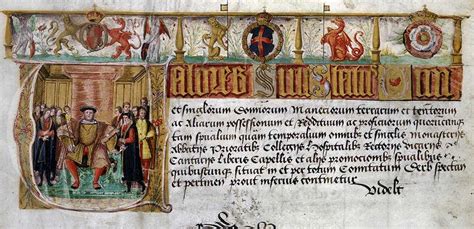 Valores Sive
et singlorum Domiorum Maneriorum terrarum et tentorum
ac Aliarum possessionum et Reddituum ac proficuorum quorumcunq
tam spualium quam temporalium omnibus et singlis monasterijs
Abbathijs Prioratib Collegijs Hospitalib Rectorijs Vicarijs
Cantarijs Liberis Capellis et alijs promocionibus spualibus
quibuscunque situat in et per totum Comitatum Derb spectan
et pertinen prout inferius continetur
Videlt